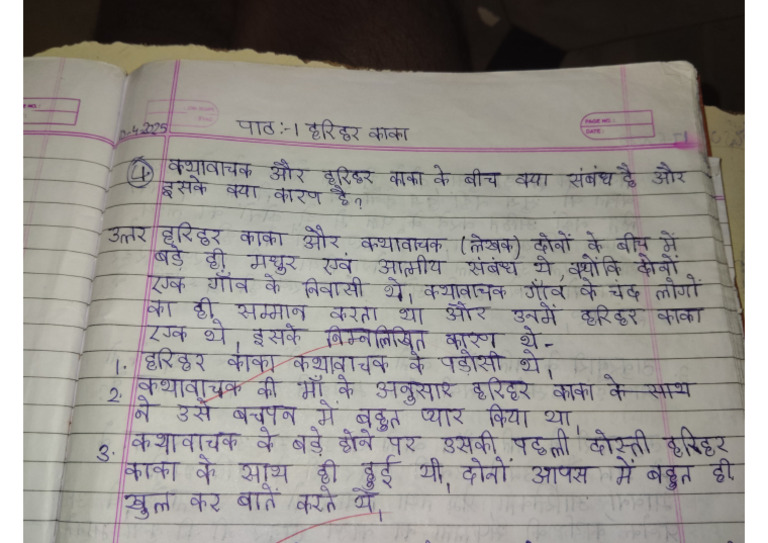 PAGE NO.:
DATE:
-4-2025
पाठ:-1 हरिहर काका
1. कथावाचक और हरिहर काका के बीच क्या संबंध है और
इसके क्या कारण है?
उत्तर हरिहर काका और कथावाचक (लेखक) दोनों के बीच में
बड़े ही मधुर एवं आत्मीय संबंध थे, क्योंकि दोनों
एक गाँव के निवासी थे, कथावाचक गाँव के चंद लोगों
का ही सम्मान करता था और उनमें हरिहर काका
एक थे, इसके निम्नलिखित कारण थे-
1. हरिहर काका कथावाचक के पड़ोसी थे,
2. कथावाचक की माँ के अनुसार हरिहर काका के साथ
ने उसे बचपन में बहुत प्यार किया था,
3. कथावाचक के बड़े होने पर उसकी पहली दोस्ती हरिहर
काका के साथ ही हुई थी, दोनों आपस में बहुत ही
खुल कर बातें करते थे,